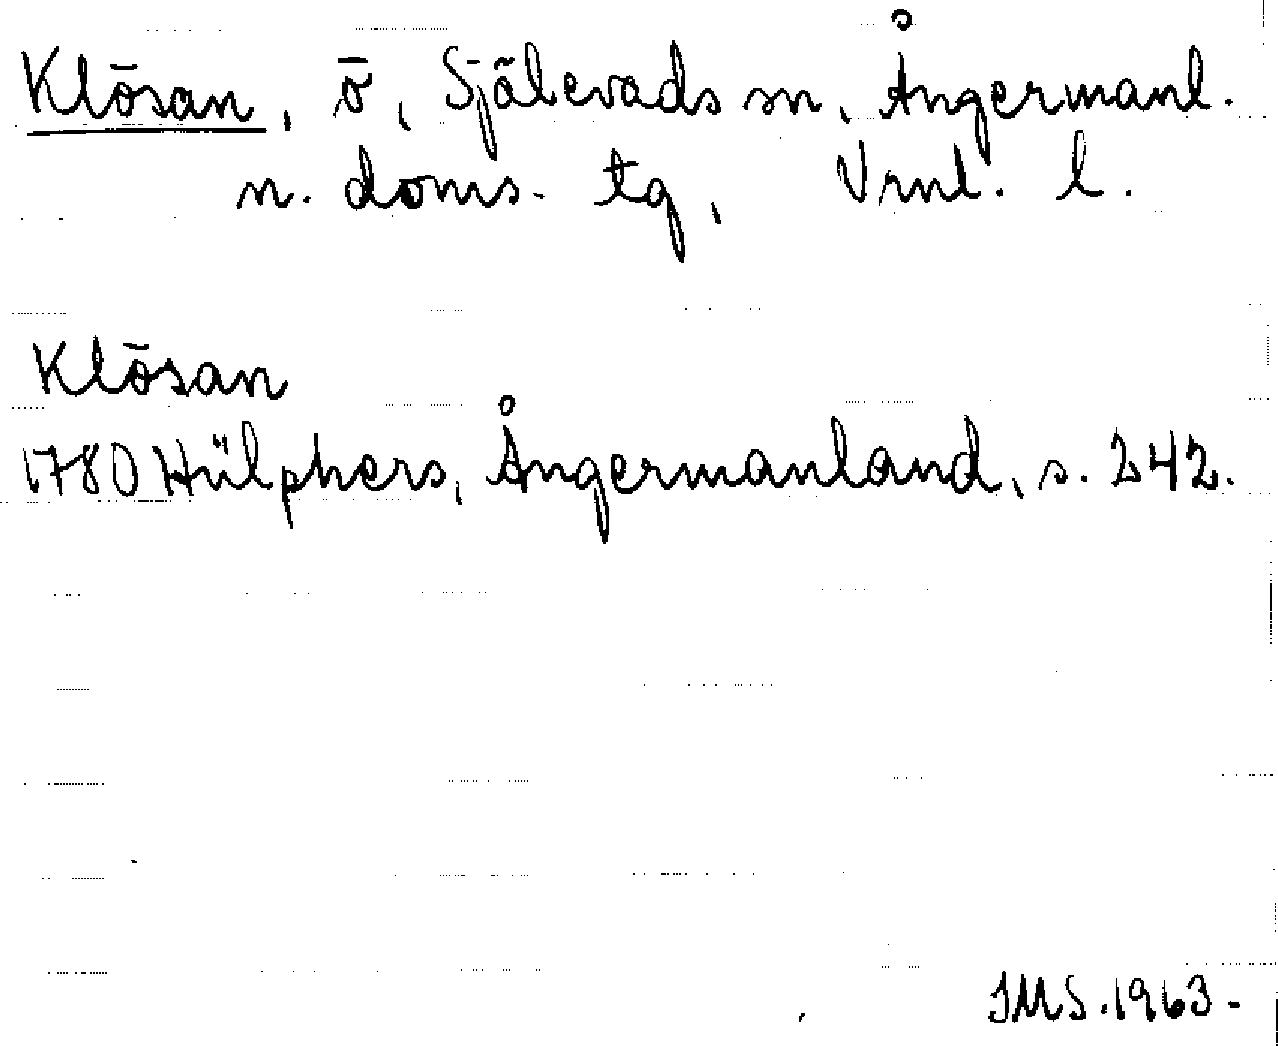 Klösan, ö, Själevads sn, Ångermanl.
n. doms. tg, Vrnl. l.
Klösan
1780 Hülphers, Ångermanland, s. 242.
IMS. 1963-